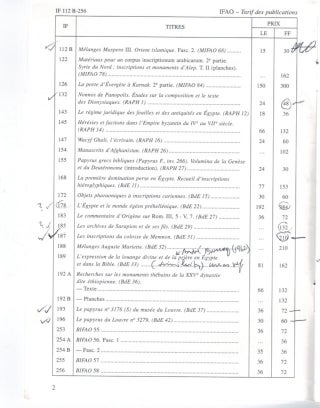 IF 112 B-256
IFAO – Tarif des publications
IF
TITRES
PRIX
LE
FF
112 B Mélanges Maspero III. Orient islamique. Fasc. 2. (MIFAO 68) 15 30
122 Matériaux pour un corpus inscriptionum arabicarum. 2e partie.
Syrie du Nord : inscriptions et monuments d'Alep. T. II (planches).
(MIFAO 78) ... 162
126 La porte d'Évergète à Karnak. 2e partie. (MIFAO 84) 150 300
132 Nonnos de Panopolis. Études sur la composition et le texte
des Dionysiaques. (RAPH 1) 24 48
143 Le régime juridique des fouilles et des antiquités en Égypte. (RAPH 12) 18 36
145 Hérésies et factions dans l'Empire byzantin du IVe au VIIe siècle.
(RAPH 14) 66 132
147 Wacyf Ghali, l'écrivain. (RAPH 16) 24 60
154 Manuscrits d'Afghanistan. (RAPH 26) ... 102
155 Papyrus grecs bibliques (Papyrus F. inv. 266). Volumina de la Genèse
et du Deutéronome (introduction). (RAPH 27) 24 30
168 La première domination perse en Égypte. Recueil d'inscriptions
hiéroglyphiques. (BdE 11) 77 153
172 Objets pharaoniques à inscriptions cariennes. (BdE 15) 30 60
178 L'Égypte et le monde égéen préhellénique. (BdE 22) 192 384
183 Le commentaire d'Origène sur Rom. III. 5 - V. 7. (BdE 27) 36 72
185 Les archives de Sarapion et de ses fils. (BdE 29) ... 132
187 Les inscriptions du colosse de Memnon. (BdE 31) ... 210
188 Mélanges Auguste Mariette. (BdE 32) ... 210
189 L'expression de la louange divine et de la prière en Égypte
et dans la Bible. (BdE 33) 81 162
192 A Recherches sur les monuments thébains de la XXVe dynastie
dite éthiopienne. (BdE 36).
— Texte 66 132
192 B — Planches ... 132
193 Le papyrus no 3176 (S) du musée du Louvre. (BdE 37) 36 72
196 Le papyrus du Louvre no 3279. (BdE 42) 30 60
253 BIFAO 55 36 72
254 A BIFAO 56. Fasc. 1 ... 36
254 B — Fasc. 2 35 36
255 BIFAO 57 36 72
256 BIFAO 58 36 72
2